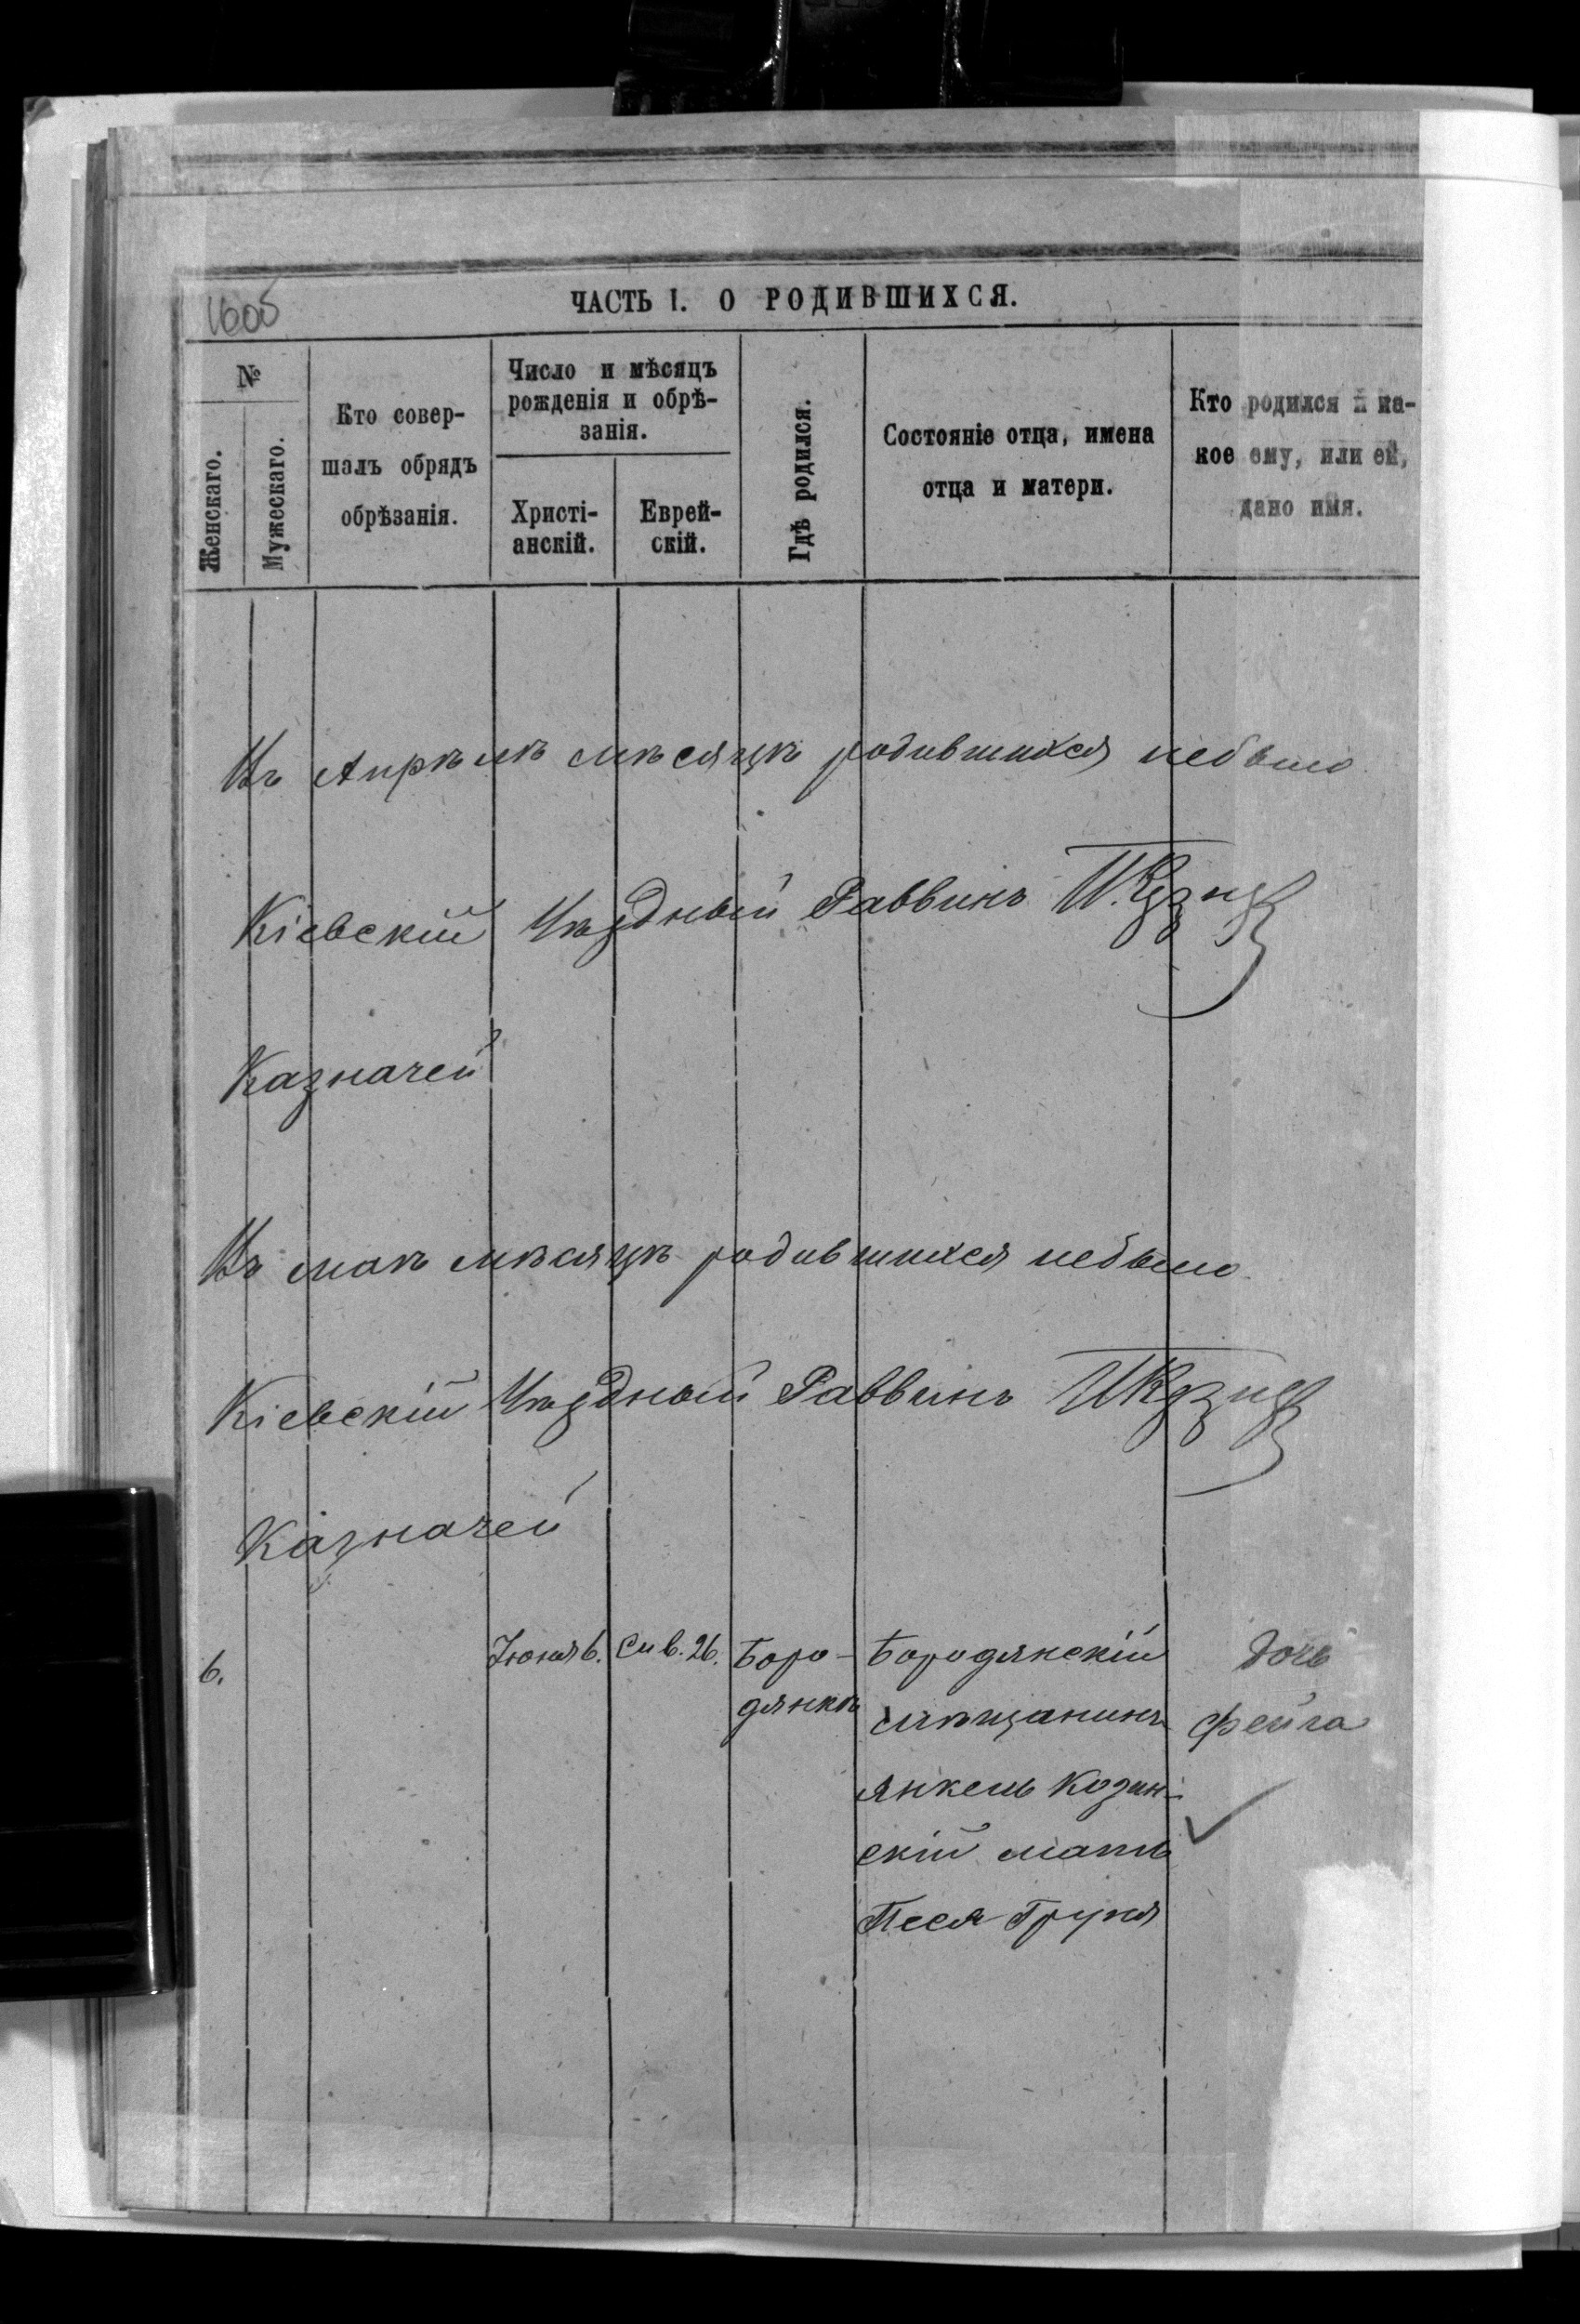 1600
ЧАСТЬ I. О РОДИВШИХСЯ.
№
Женскаго.
Мужескаго.
Кто совер-
шалъ обрядъ
обрѣзанія.
Число и мѣсяцъ
рожденія и обрѣ-
занія.
Христі-
анскій.
Еврей-
скій.
Гдѣ родился.
Состояніе отца, имена
отца и матери.
Кто родился и ка-
кое ему, или ей,
дано имя.
Въ Апрѣлѣ мѣсяцѣ родившихся небыло
Кіевскій Уѣздный Раввинъ
Казначей
Въ маѣ мѣсяцѣ родившихся небыло
Кіевскій Уѣздный Раввинъ
Казначей
6.
Іюня 6.
Сив. 26.
Боро-
дянкѣ
Бородянскій
мѣщанинъ
Янкель Козин-
скій мать
Песя Груня
Дочь
Фейга